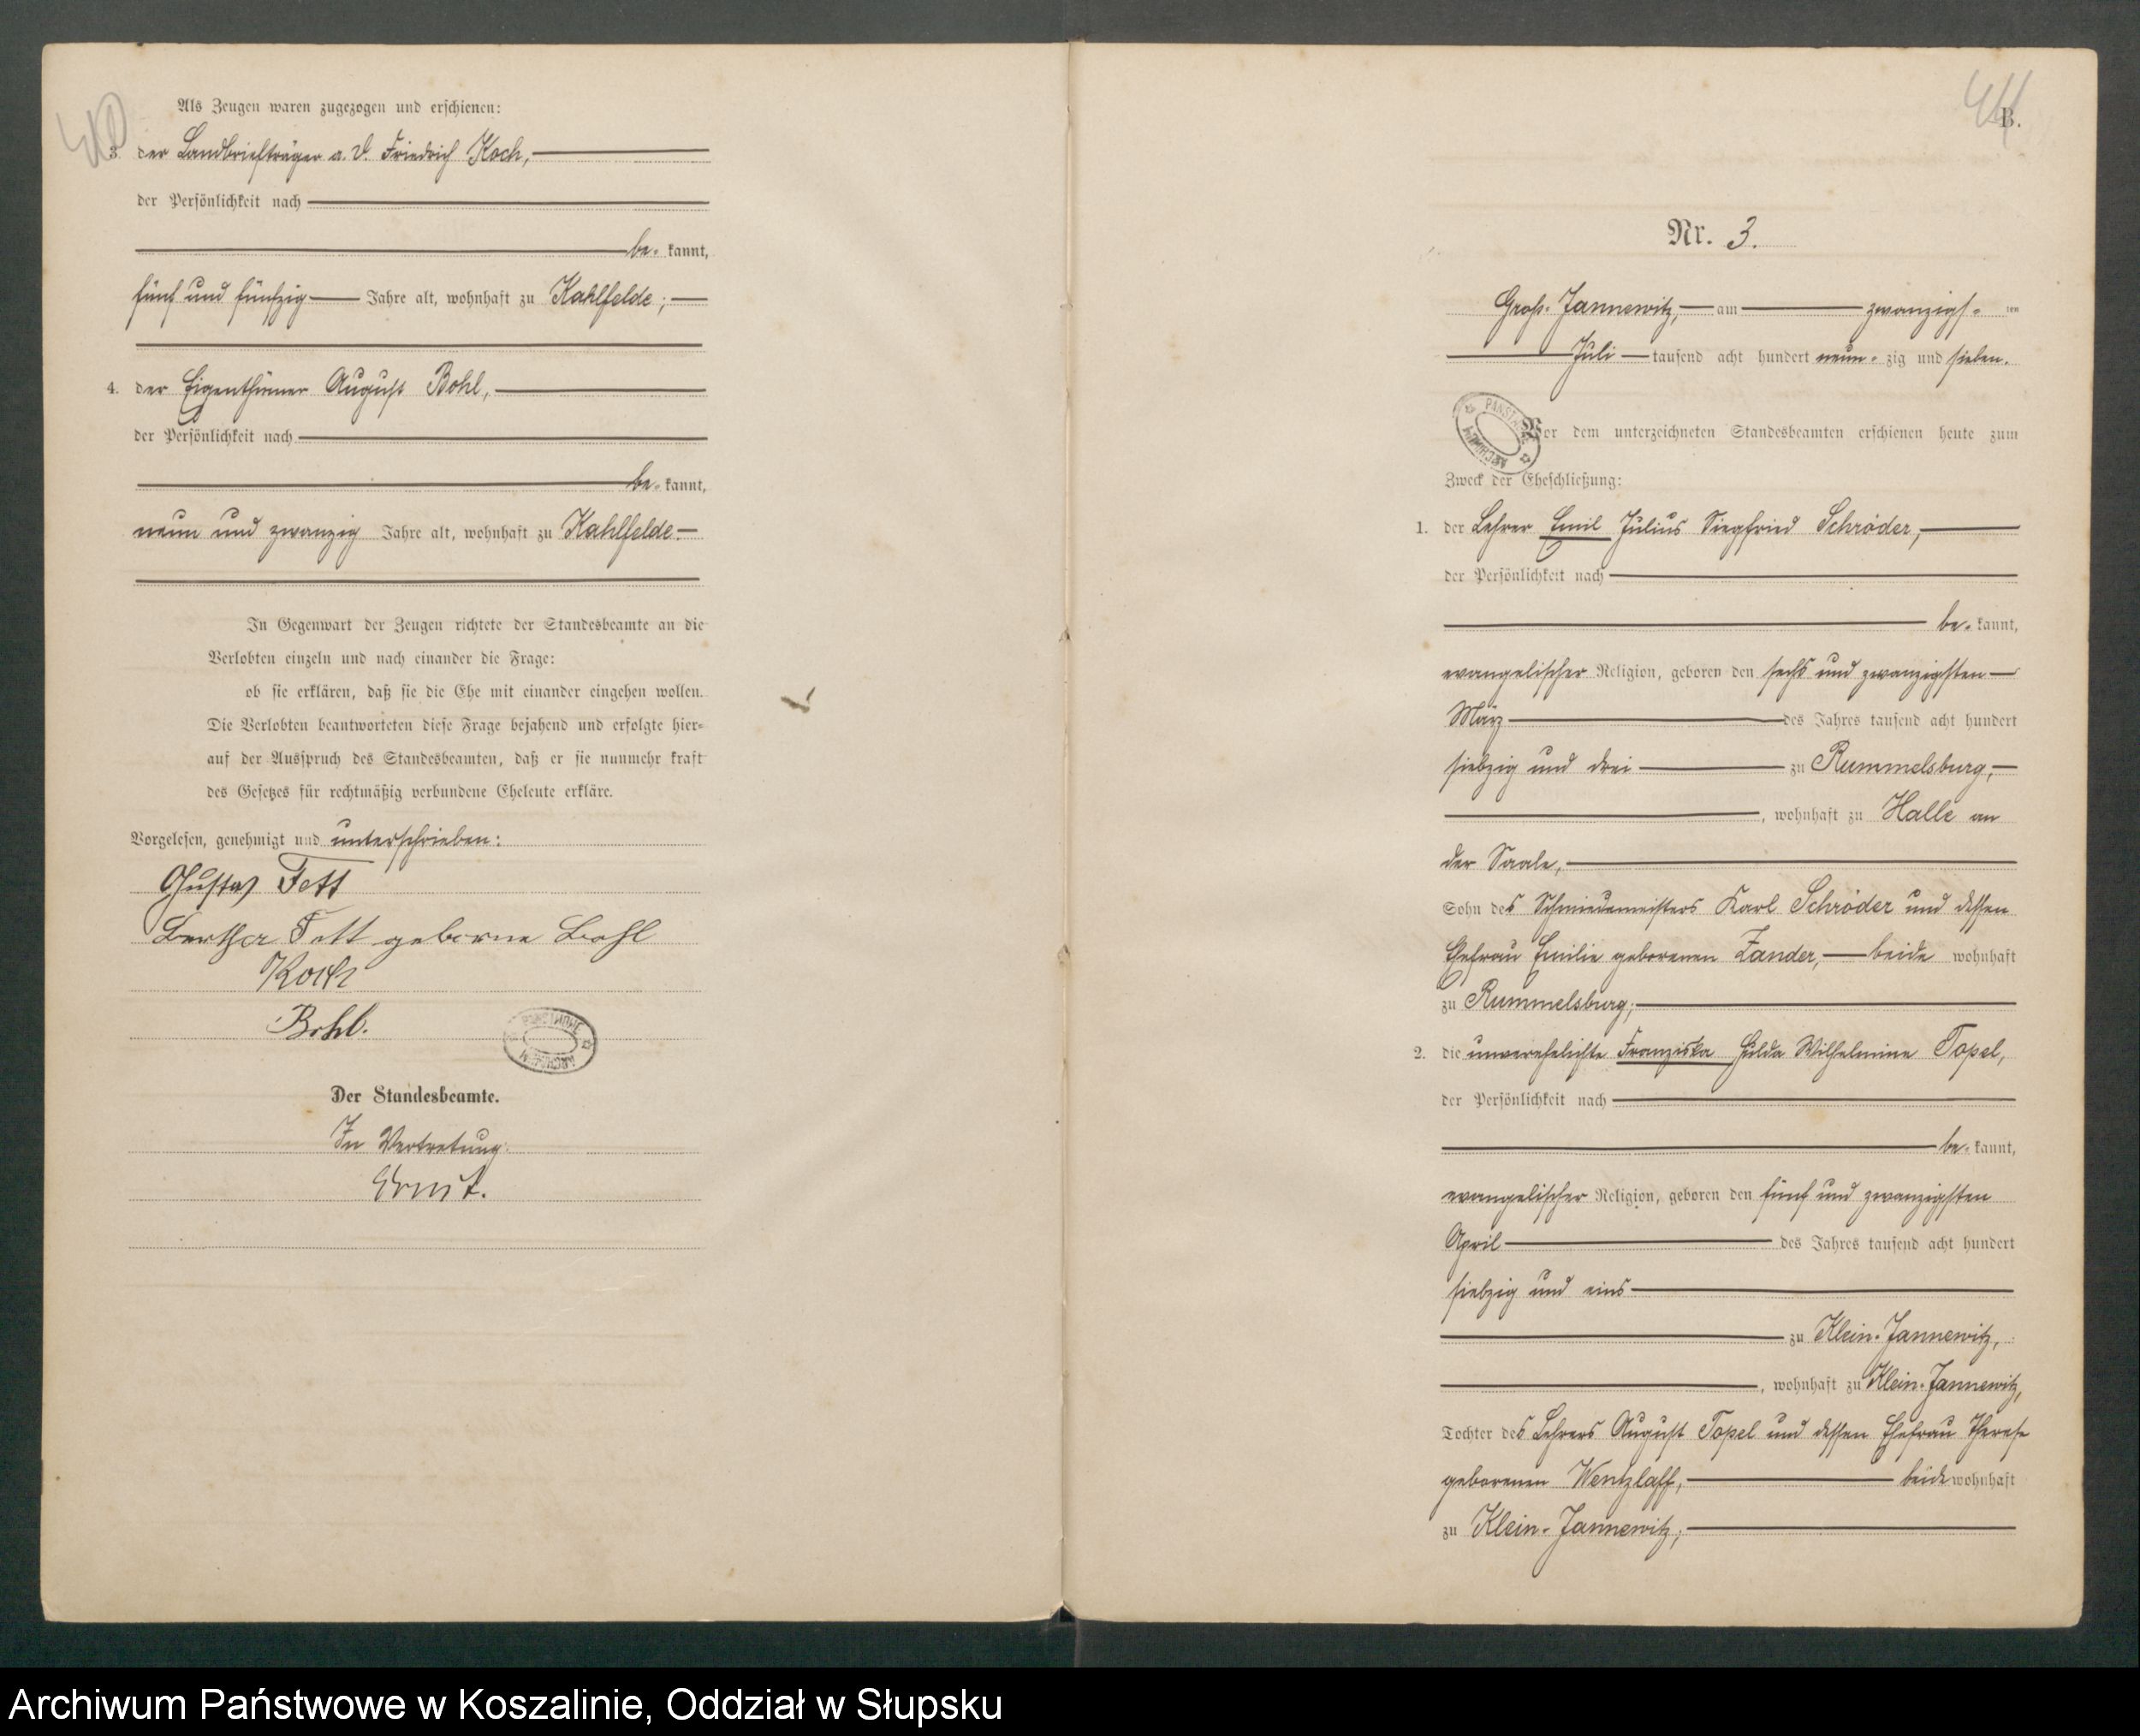 40
Als Zeugen waren zugezogen und erschienen:
3. der Landbriefträger a. D. Friedrich Koch,
der Persönlichkeit nach
be- kannt,
fünf und fünfzig Jahre alt, wohnhaft zu Kahlfelde;
4. der Eigenthümer August Bohl,
der Persönlichkeit nach
be- kannt,
neun und zwanzig Jahre alt, wohnhaft zu Kahlfelde.
In Gegenwart der Zeugen richtete der Standesbeamte an die
Verlobten einzeln und nach einander die Frage:
ob sie erklären, daß sie die Ehe mit einander eingehen wollen.
Die Verlobten beantworteten diese Frage bejahend und erfolgte hier-
auf der Ausspruch des Standesbeamten, daß er sie nunmehr kraft
des Gesetzes für rechtmäßig verbundene Eheleute erkläre.
Vorgelesen, genehmigt und unterschrieben:
Gustav Fett
Berther Fett geborne Bohl
Koch
Bohl.
Der Standesbeamte.
In Vertretung:
41
B.
Nr. 3.
Groß-Jannewitz, am zwanzigs- ten
Juli tausend acht hundert neun- zig und sieben.
Vor dem unterzeichneten Standesbeamten erschienen heute zum
Zweck der Eheschließung:
1. der Lehrer Emil Julius Siegfried Schröder,
der Persönlichkeit nach
be- kannt,
evangelischer Religion, geboren den sechs und zwanzigsten
März des Jahres tausend acht hundert
siebzig und drei zu Rummelsburg,
, wohnhaft zu Halle an
der Saale,
Sohn des Schmiedemeisters Karl Schröder und dessen
Ehefrau Emilie geborenen Zander, beide wohnhaft
zu Rummelsburg;
2. die unverehelichte Franziska Hulda Wilhelmine Topel,
der Persönlichkeit nach
be- kannt,
evangelischer Religion, geboren den fünf und zwanzigsten
April des Jahres tausend acht hundert
siebzig und eins
zu Klein-Jannewitz,
, wohnhaft zu Klein-Jannewitz,
Tochter des Lehrers August Topel und dessen Ehefrau Therese
geborenen Wentzlaff, beide wohnhaft
zu Klein-Jannewitz;
Archiwum Państwowe w Koszalinie, Oddział w Słupsku